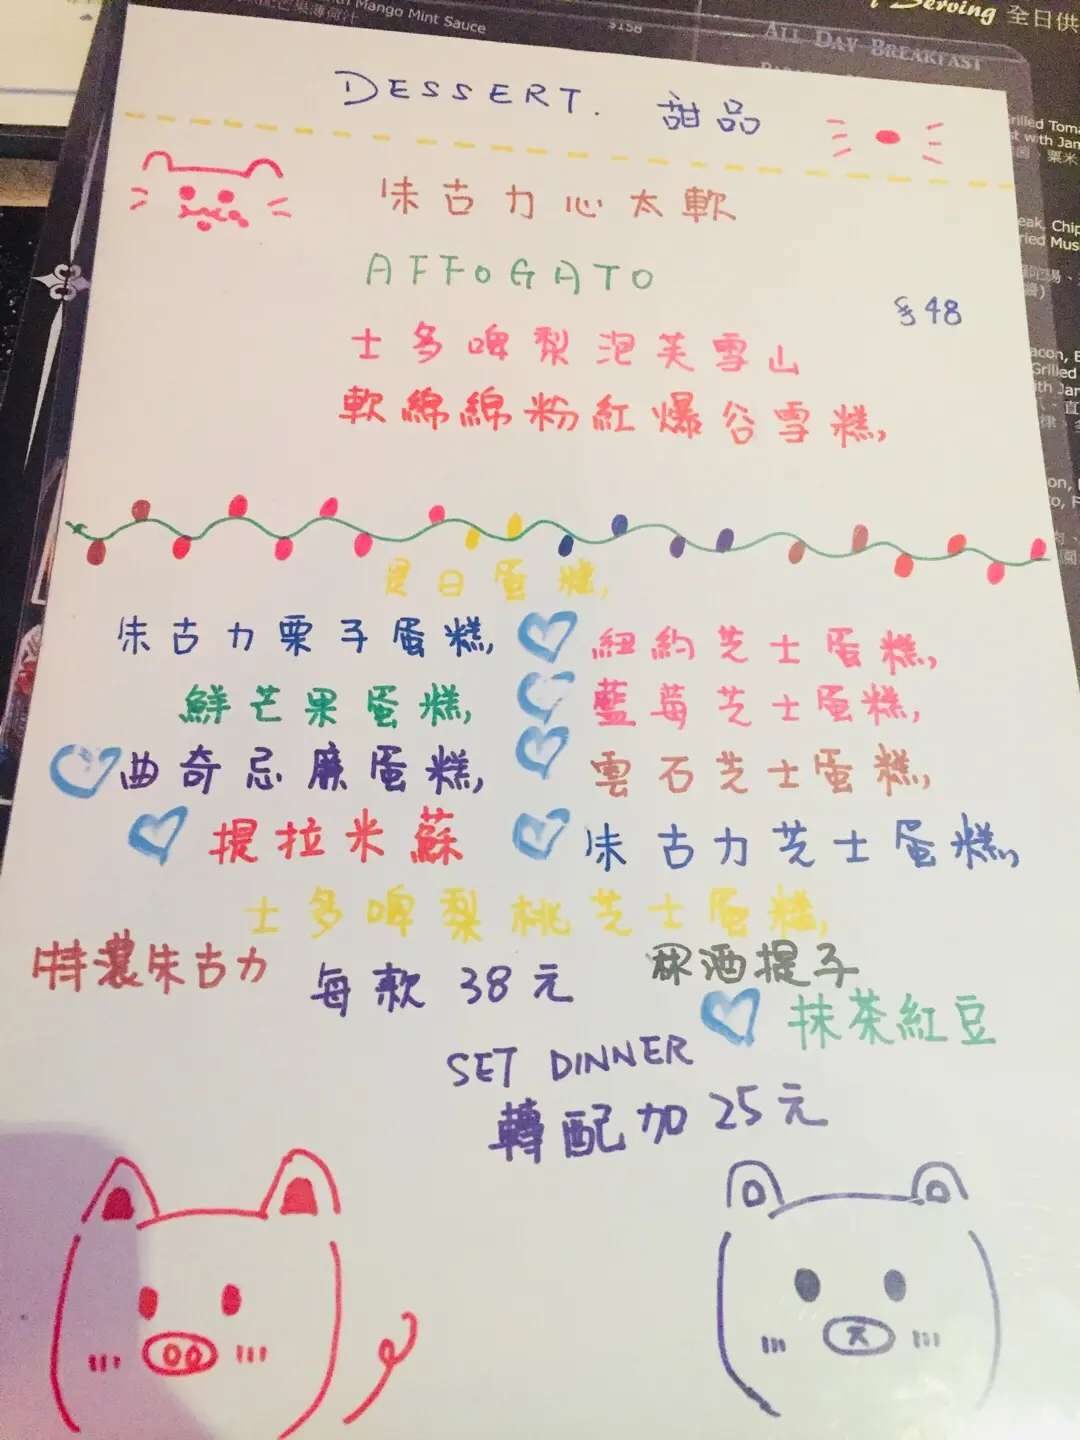 with Mango Mint Sauce
配芒果薄荷汁
$158
Serving 全日供
ALL DAY BREAKFAST
DESSERT. 甜品
朱古力心太軟
AFFOGATO
$48
士多啤梨泡芙雪山
軟綿綿粉紅爆谷雪糕
是日蛋糕
朱古力栗子蛋糕
紐約芝士蛋糕
鮮芒果蛋糕
藍莓芝士蛋糕
曲奇忌廉蛋糕
雲石芝士蛋糕
提拉米蘇
朱古力芝士蛋糕
士多啤梨桃芝士蛋糕
特濃朱古力
每款 38元
冧酒提子
抹茶紅豆
SET DINNER
轉配加 25元